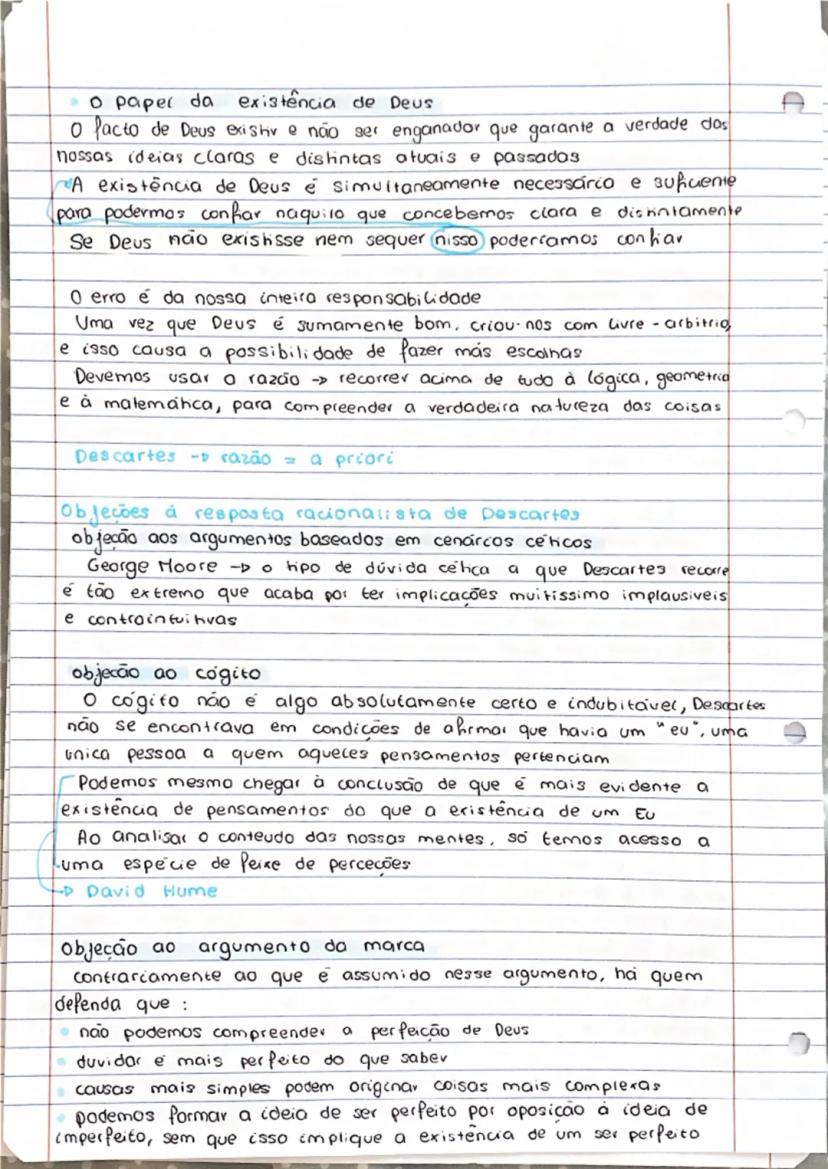 • O papel da existência de Deus
O facto de Deus existir e não ser enganador que garante a verdade das
nossas ideias claras e distintas atuais e passadas
A existência de Deus é simultaneamente necessário e suficiente
para podermos confiar naquilo que concebemos clara e distintamente
Se Deus não existisse nem sequer nisso poderíamos confiar
O erro é da nossa inteira responsabilidade
Uma vez que Deus é sumamente bom, criou-nos com livre-arbitrio,
e isso causa a possibilidade de fazer más escolhas
Devemos usar a razão → recorrer acima de tudo à lógica, geometria
e à matemática, para compreender a verdadeira natureza das coisas
Descartes → razão = a priori
Objeções à resposta racionalista de Descartes
objeção aos argumentos baseados em cenários céticos
George Moore → o tipo de dúvida cética a que Descartes recorre
é tão extremo que acaba por ter implicações muitíssimo implausiveis
e contraintuitivas
objeção ao cógito
O cógito não é algo absolutamente certo e indubitável, Descartes
não se encontrava em condições de afirmar que havia um "eu", uma
única pessoa a quem aqueles pensamentos pertenciam
Podemos mesmo chegar à conclusão de que é mais evidente a
existência de pensamentos do que a existência de um Eu
Ao analisar o conteudo das nossas mentes, só temos acesso a
uma espécie de feixe de perceções
→ David Hume
Objeção ao argumento da marca
contrariamente ao que é assumido nesse argumento, há quem
defenda que :
• não podemos compreender a perfeição de Deus
• duvidar é mais perfeito do que saber
• causas mais simples podem originar coisas mais complexas
• podemos formar a ideia de ser perfeito por oposição à ideia de
imperfeito, sem que isso implique a existência de um ser perfeito